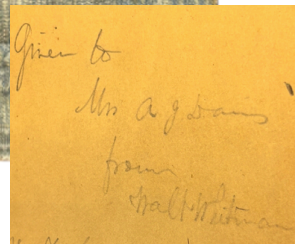 Given to
Mrs A J Davis
from
Walt Whitman